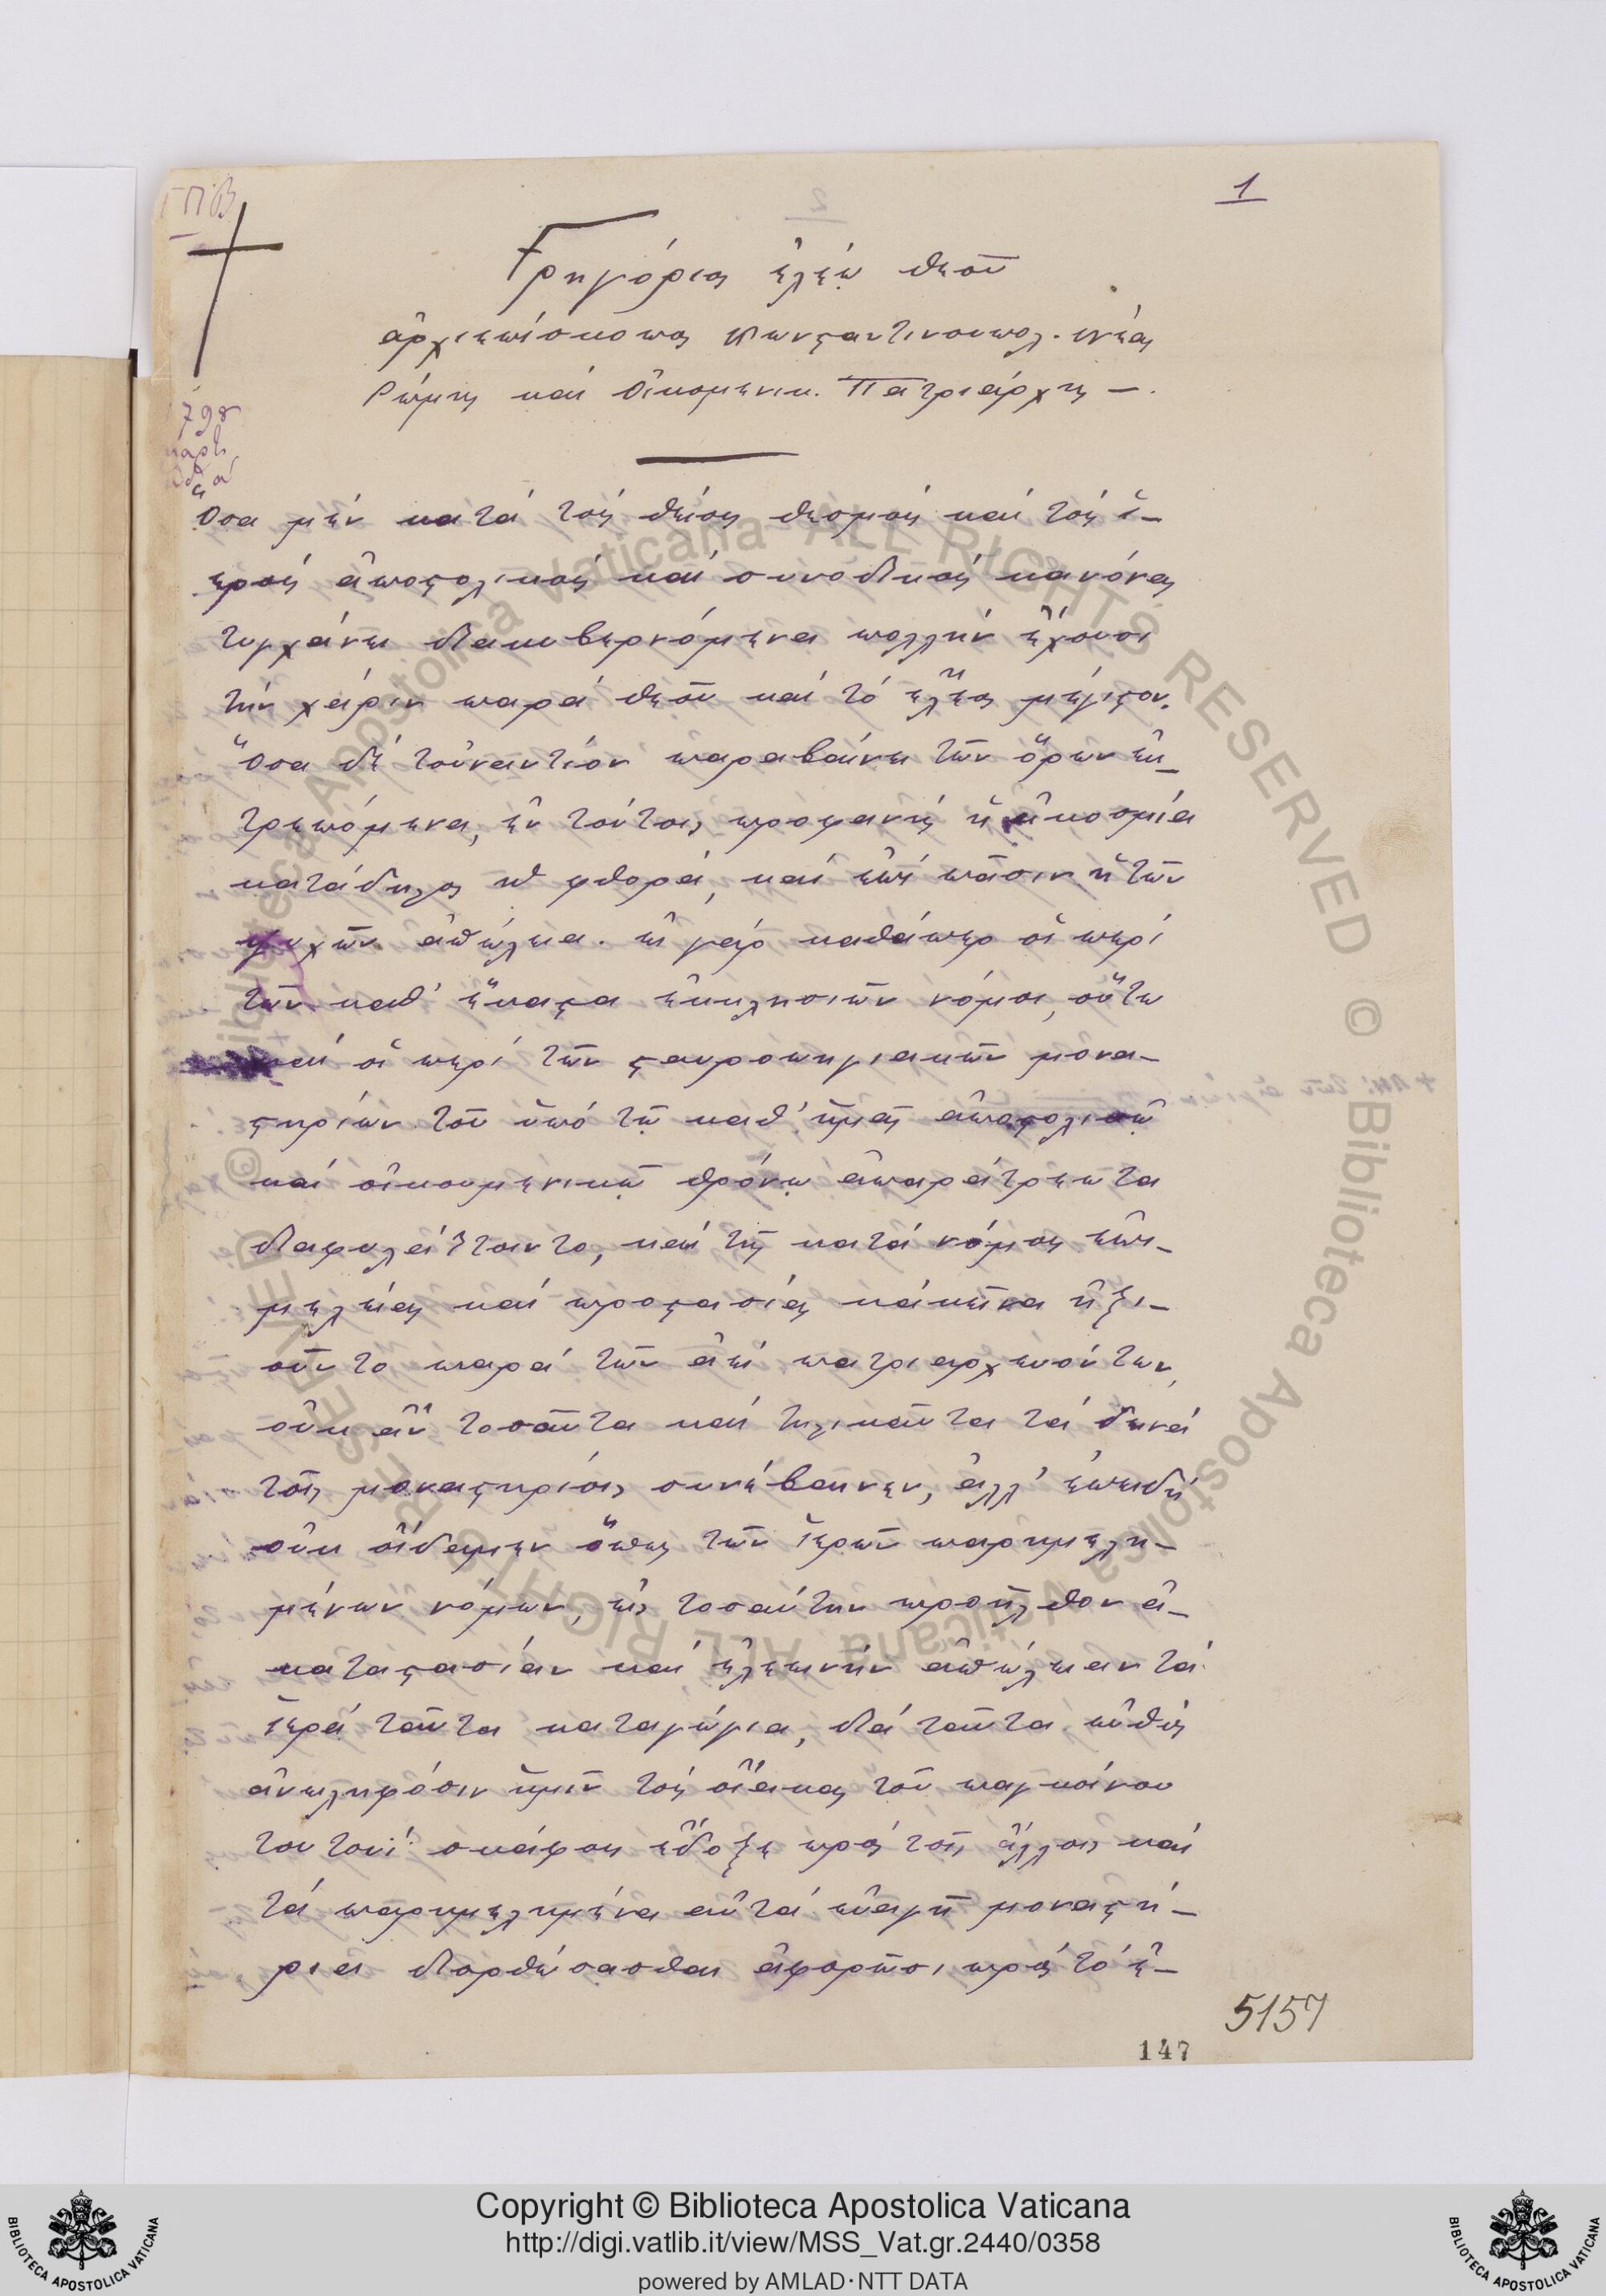 1
Γρηγόριος ἐλέῳ θεοῦ
ἀρχιεπίσκοπος Κωνσταντινουπολ. νέας
Ρώμης καί Οἰκομενικ. Πατριάρχης —.
798
Ὅσα μέν κατά τούς θείους θεσμούς καί τούς ἱ-
ερούς ἀποστολικούς καί συνοδικούς κανόνας
τυγχάνει διακυβερνόμενα πολλήν ἔχουσι
τήν χάριν παρά θεοῦ καί τό ἔλεος μέγιστον.
Ὅσα δέ τοὐναντίον παραβαίνει τῶν ὅρων ἐκ-
τρεπόμενα, ἐν τούτοις προφανής ἡ ἀκοσμία
κατάδηλος ἡ φθορά, καί ἐπί πᾶσιν ἡ τῶν
ψυχῶν ἀπώλεια. εἰ γάρ καθάπερ οἱ περί
τῶν καθ' ἕκαστα ἐκκλησιῶν νόμοι, οὕτω
καί οἱ περί τῶν σταυροπηγιακῶν μονα-
στηρίων τῶν ὑπό τῷ καθ' ἡμᾶς ἀποστολικῷ
καί οἰκουμενικῷ θρόνῳ ἀπαράτρεπτα
διαφυλάττοιντο, καί τῆς κατά νόμους ἐπι-
μελείας καί προστασίας κἀκεῖνα ἠξι-
οῦντο παρά τῶν ἀεί πατριαρχευόντων,
οὐκ ἄν τοσαῦτα καί τηλικαῦτα τά δεινά
τοῖς μοναστηρίοις συνέβαινεν, ἀλλ' ἐπειδή
οὐκ οἴδαμεν ὅπως τῶν ἱερῶν παρημελη-
μένων νόμων, εἰς τοσαύτην προῆλθον ἀ-
καταστασίαν καί ἐλεεινήν ἀπώλειαν τά
ἱερά ταῦτα καταγώγια, διά ταῦτα εὐθύς
ἀνειληφόσιν ἡμῖν τούς οἴακας τοῦ παγκοίνου
τουτουί σκάφους ἔδοξε πρός τοῖς ἄλλοις καί
τά παρημελημένα αὐτά εὐαγῆ μοναστή-
ρια διορθώσασθαι ἀφορῶσι πρός τό ἐ-
5157
147
Copyright © Biblioteca Apostolica Vaticana
http://digi.vatlib.it/view/MSS_Vat.gr.2440/0358
powered by AMLAD·NTT DATA
BIBLIOTECA APOSTOLICA VATICANA
BIBLIOTECA APOSTOLICA VATICANA
© Biblioteca Apostolica Vaticana ALL RIGHTS RESERVED © Biblioteca Apostolica Vaticana ALL RIGHTS RESERVED